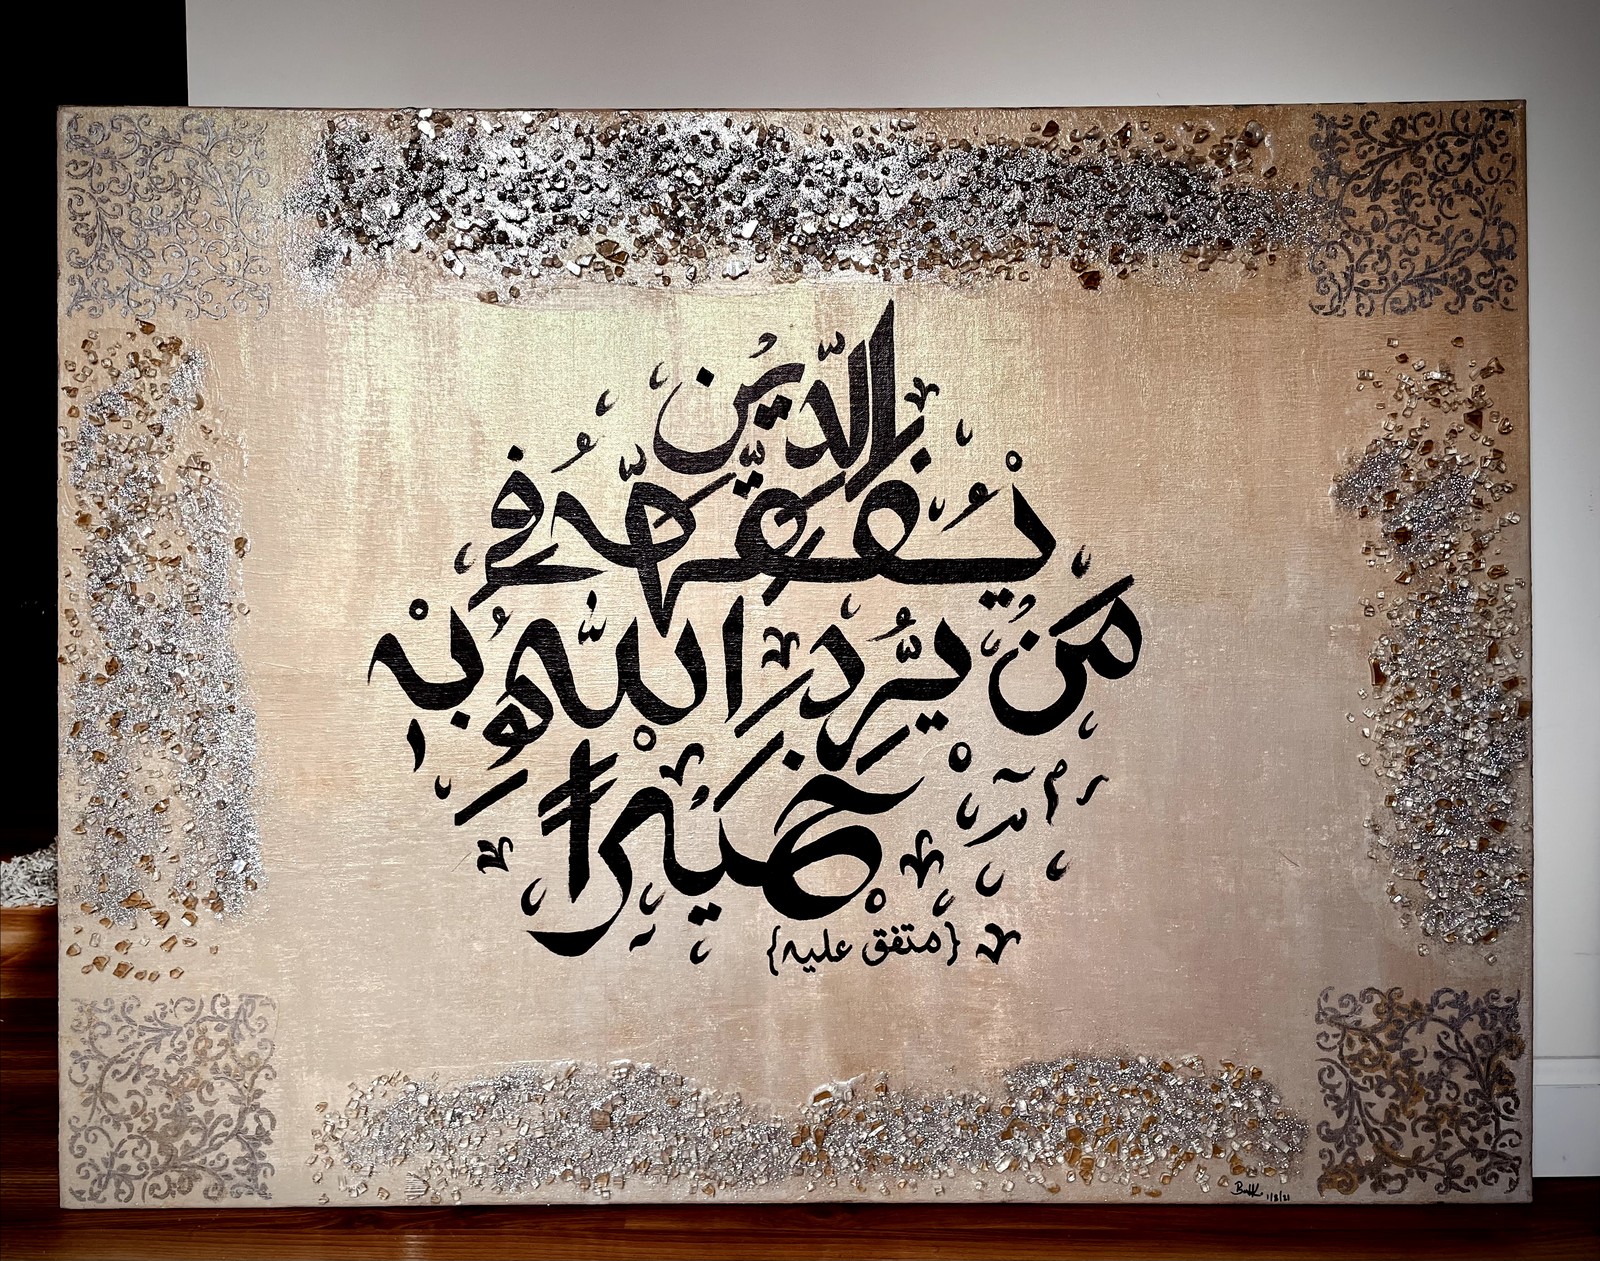 مَن يُّرِدِ اللّٰهُ بِهِ
خَيْرًا
يُفَقِّهْهُ فِي
الدِّينِ
{متفق عليه}